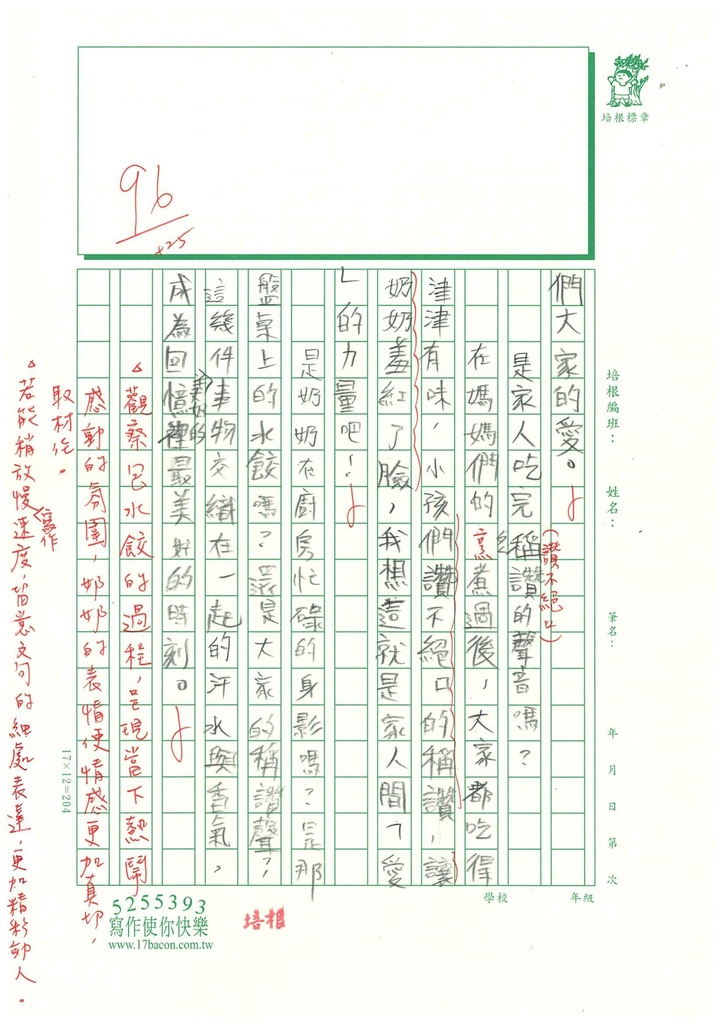 培根標章
96
+25
培根編班：
姓名：
筆名：
年 月 日 第 次
學校
年級
們大家的愛。
是家人吃完稱讚的聲音嗎？
(讚不絕口)
在媽媽們的烹煮過後，大家都吃得
津津有味，小孩們讚不絕口的稱讚，讓
奶奶羞紅了臉，我想這就是家人間「愛
」的力量吧！
是奶奶在廚房忙碌的身影嗎？是那
盤桌上的水餃嗎？還是大家的稱讚聲？
這幾件事物交織在一起的汗水與香氣，
成為回憶裡最美好的時刻。
美好的
觀察包水餃的過程，呈現當下熱鬧
感動的氛圍，奶奶的表情使情感更加真切，
取材佳。
若能稍放慢寫作速度，留意文句的細處表達，更加精彩動人。
17×12=204
5255393
寫作使你快樂
www.17bacon.com.tw
培根